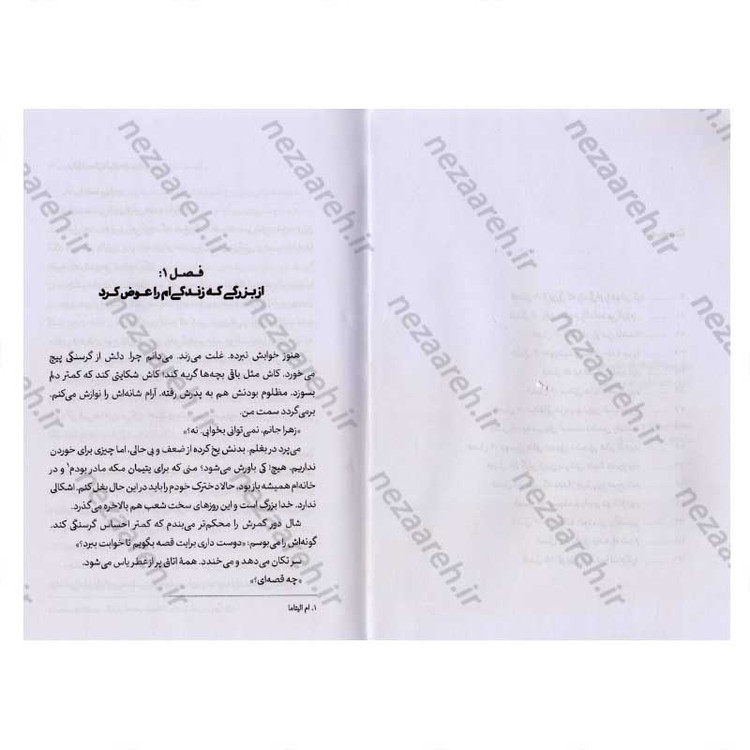 فصل ۱:
از بزرگی که زندگی‌ام را عوض کرد
هنوز خوابش نبرده. غلت می‌زند. می‌دانم چرا. دلش از گرسنگی پیچ
می‌خورد. کاش مثل باقی بچه‌ها گریه کند؛ کاش شکایتی کند که کمتر دلم
بسوزد. مظلوم بودنش هم به پدرش رفته. آرام شانه‌اش را نوازش می‌کنم.
برمی‌گردد سمت من.
«زهرا جانم، نمی‌توانی بخوابی. نه؟»
می‌پرد در بغلم. بدنش یخ کرده از ضعف و بی‌حالی، اما چیزی برای خوردن
نداریم. هیچ! کی باورش می‌شود؟ منی که برای یتیمان مکه مادر بودم۱ و در
خانه‌ام همیشه باز بود، حالا دخترک خودم را باید در این حال بغل کنم. اشکالی
ندارد. خدا بزرگ است و این روزهای سخت شعب هم بالاخره می‌گذرد.
شال دور کمرش را محکم‌تر می‌بندم که کمتر احساس گرسنگی کند.
گونه‌اش را می‌بوسم: «دوست داری برایت قصه بگویم تا خوابت ببرد؟»
سر تکان می‌دهد و می‌خندد. همهٔ اتاق پر از عطر یاس می‌شود.
«چه قصه‌ای؟»
۱. ام الیتاما
nezaareh.ir
nezaareh.ir
nezaareh.ir
nezaareh.ir
nezaareh.ir
nezaareh.ir
nezaareh.ir
nezaareh.ir
nezaareh.ir